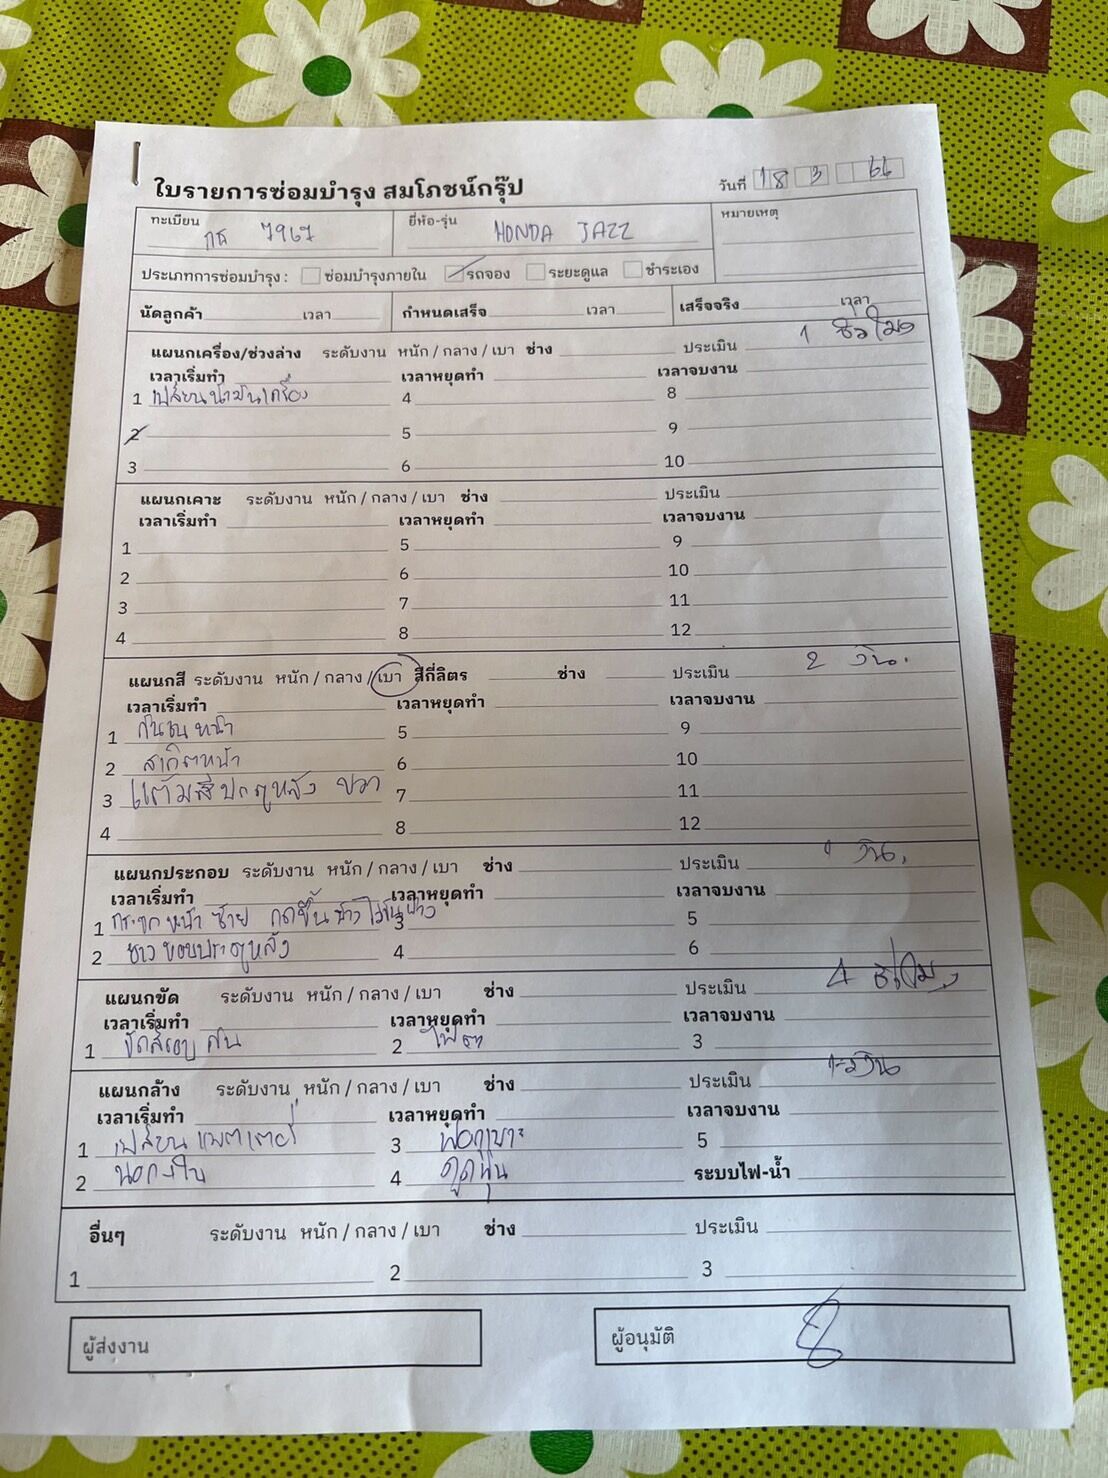 ใบรายการซ่อมบำรุง สมโภชน์กรุ๊ป
วันที่ 18 3 66
ทะเบียน กธ 7967 ยี่ห้อ-รุ่น HONDA JAZZ หมายเหตุ
ประเภทการซ่อมบำรุง : ซ่อมบำรุงภายใน รถจอง ระยะดูแล ชำระเอง
นัดลูกค้า เวลา กำหนดเสร็จ เวลา เสร็จจริง เวลา
แผนกเครื่อง/ช่วงล่าง ระดับงาน หนัก / กลาง / เบา ช่าง ประเมิน 1 ชั่วโมง
เวลาเริ่มทำ เวลาหยุดทำ เวลาจบงาน
1 เปลี่ยนน้ำมันเครื่อง 4 8
2 5 9
3 6 10
แผนกเคาะ ระดับงาน หนัก / กลาง / เบา ช่าง ประเมิน
เวลาเริ่มทำ เวลาหยุดทำ เวลาจบงาน
1 5 9
2 6 10
3 7 11
4 8 12
แผนกสี ระดับงาน หนัก / กลาง / เบา สีกี่ลิตร ช่าง ประเมิน 2 วัน.
เวลาเริ่มทำ เวลาหยุดทำ เวลาจบงาน
1 กันชนหน้า 5 9
2 สเกิตหน้า 6 10
3 แต้มสีประตูหลัง ขวา 7 11
4 8 12
แผนกประกอบ ระดับงาน หนัก / กลาง / เบา ช่าง ประเมิน 1 วัน.
เวลาเริ่มทำ เวลาหยุดทำ เวลาจบงาน
1 กระจกหน้า ซ้าย กดขึ้น 3 5
2 ยางขอบประตูหลัง 4 6
แผนกขัด ระดับงาน หนัก / กลาง / เบา ช่าง ประเมิน 4 ชั่วโมง
เวลาเริ่มทำ เวลาหยุดทำ เวลาจบงาน
1 ขัดสีรอบคัน 2 3
แผนกล้าง ระดับงาน หนัก / กลาง / เบา ช่าง ประเมิน 1 วัน
เวลาเริ่มทำ เวลาหยุดทำ เวลาจบงาน
1 เปลี่ยนแบตเตอรี่ 3 ฟอกเบาะ 5
2 นอก-ใน 4 ดูดฝุ่น ระบบไฟ-น้ำ
อื่นๆ ระดับงาน หนัก / กลาง / เบา ช่าง ประเมิน
1 2 3
ผู้ส่งงาน ผู้อนุมัติ